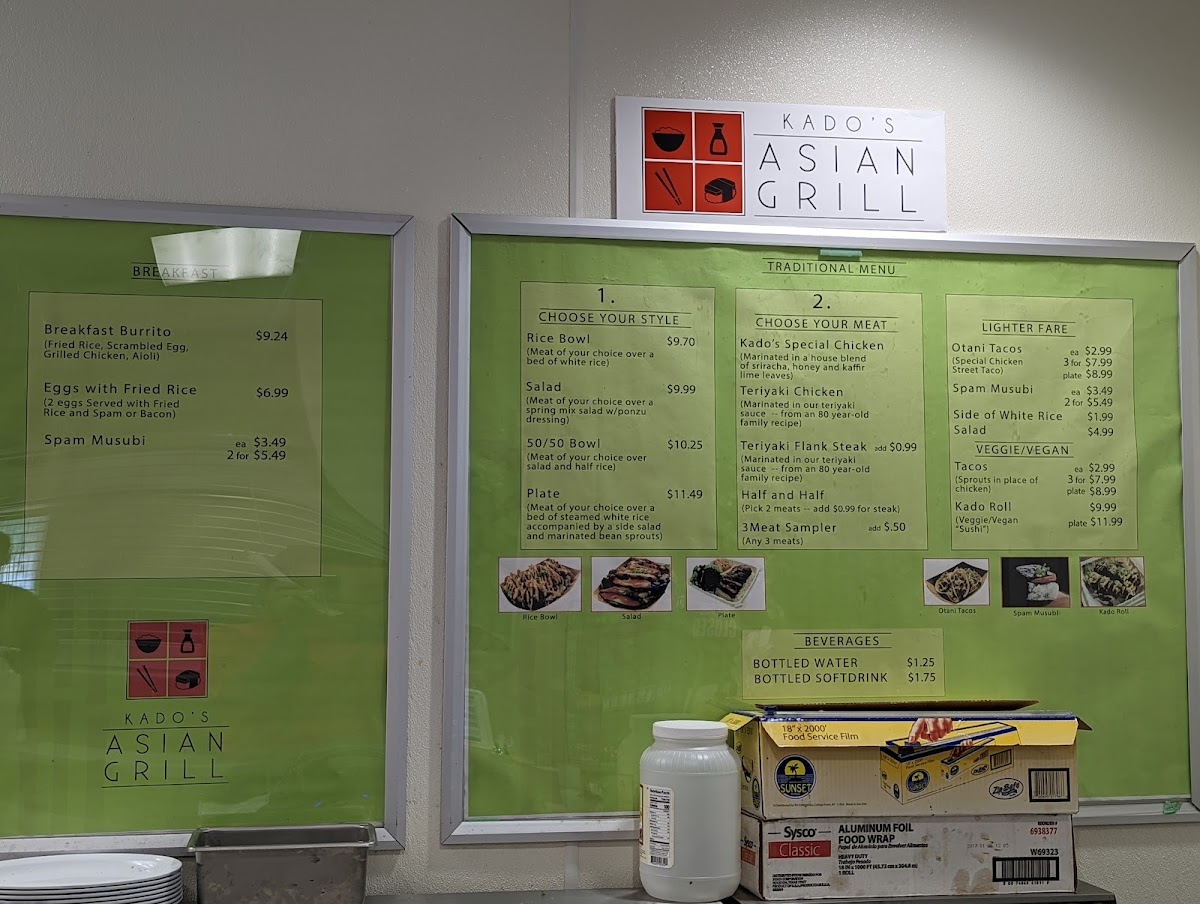 KADO'S
ASIAN
GRILL
BREAKFAST
Breakfast Burrito $9.24
(Fried Rice, Scrambled Egg,
Grilled Chicken, Aioli)
Eggs with Fried Rice $6.99
(2 eggs Served with Fried
Rice and Spam or Bacon)
Spam Musubi ea $3.49
2 for $5.49
KADO'S
ASIAN
GRILL
TRADITIONAL MENU
1.
CHOOSE YOUR STYLE
Rice Bowl $9.70
(Meat of your choice over a
bed of white rice)
Salad $9.99
(Meat of your choice over a
spring mix salad w/ponzu
dressing)
50/50 Bowl $10.25
(Meat of your choice over
salad and half rice)
Plate $11.49
(Meat of your choice over a
bed of steamed white rice
accompanied by a side salad
and marinated bean sprouts)
2.
CHOOSE YOUR MEAT
Kado's Special Chicken
(Marinated in a house blend
of sriracha, honey and kaffir
lime leaves)
Teriyaki Chicken
(Marinated in our teriyaki
sauce -- from an 80 year-old
family recipe)
Teriyaki Flank Steak add $0.99
(Marinated in our teriyaki
sauce -- from an 80 year-old
family recipe)
Half and Half
(Pick 2 meats -- add $0.99 for steak)
3Meat Sampler add $.50
(Any 3 meats)
LIGHTER FARE
Otani Tacos ea $2.99
(Special Chicken 3 for $7.99
Street Taco) plate $8.99
Spam Musubi ea $3.49
2 for $5.49
Side of White Rice $1.99
Salad $4.99
VEGGIE/VEGAN
Tacos ea $2.99
(Sprouts in place of 3 for $7.99
chicken) plate $8.99
Kado Roll $9.99
(Veggie/Vegan plate $11.99
"Sushi")
Rice Bowl
Salad
Plate
Otani Tacos
Spam Musubi
Kado Roll
BEVERAGES
BOTTLED WATER $1.25
BOTTLED SOFTDRINK $1.75
18" x 2000'
Food Service Film
SUNSET
Sysco
Classic
ALUMINUM FOIL
FOOD WRAP
Papel de Aluminio para Envolver Alimentos
HEAVY DUTY
Trabajo Pesado
18 IN x 1000 FT (45.72 cm x 304.8 m)
1 ROLL
6938377
W69323